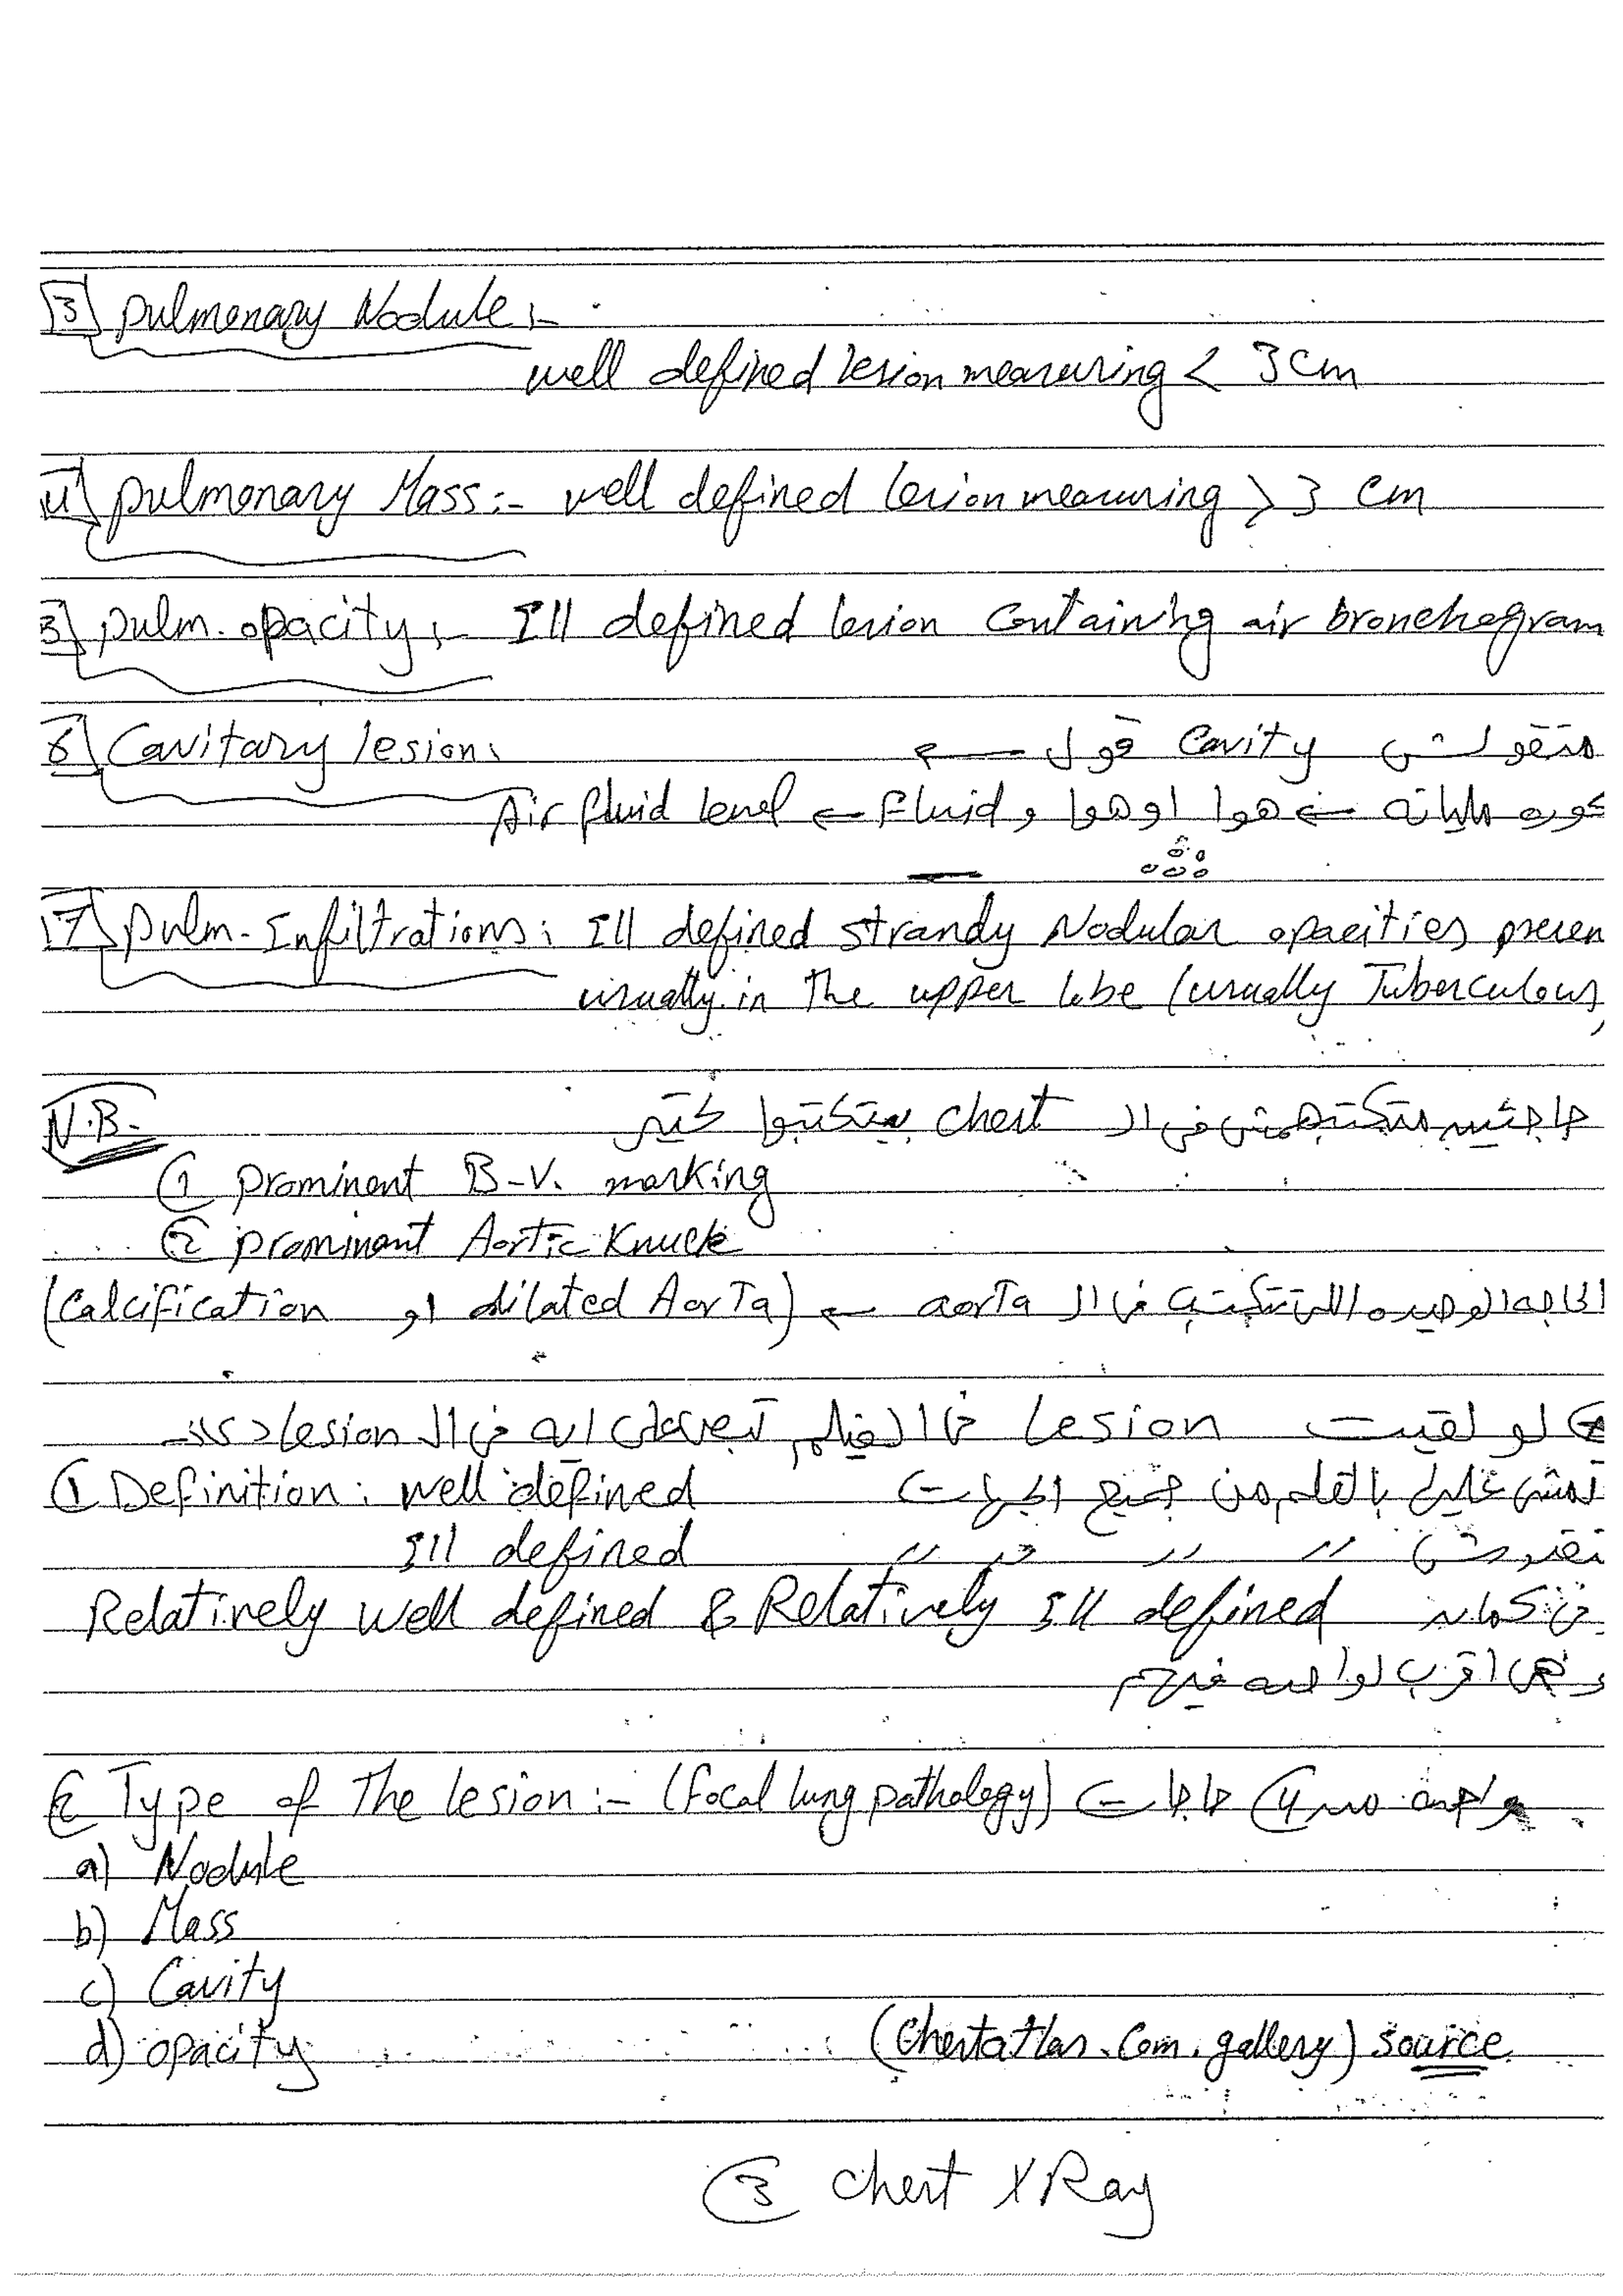 3 Pulmonary Nodule :-
well defined lesion measuring < 3 cm
4 pulmonary Mass :- well defined lesion measuring > 3 cm
5 pulm. opacity :- Ill defined lesion containing air bronchogram
6 Cavitary lesion: متقولش Cavity قول ←
كوره مليانه ← هوا او هوا و Fluid ← Air fluid level
7 pulm. Infiltrations: Ill defined strandy Nodular opacities presen
usually in The upper lobe (usually Tuberculous)
N.B. حاجتين مبتكتبهمش في ال chest بيتكتبوا كتير
① prominent B.V. marking
② prominent Aortic Knuckle
الحاجه الوحيده اللي تتكتب في ال aorta ← (Calcification او dilated Aorta)
لو لقيت lesion في الفيلم تبص على ايه في ال lesion دي
① Definition: well defined تمشي عليها بالقلم من جميع الجهات
Ill defined تقدرش 〃 〃 من 〃
Relatively well defined & Relatively Ill defined في كمان
وهي اقرب لواحده فيهم
② Type of The lesion :- (focal lung pathology) واحده من 4 حاجات
a) Nodule
b) Mass
c) Cavity
d) opacity
(Chestatlas.Com.gallery) source
③ chest X Ray